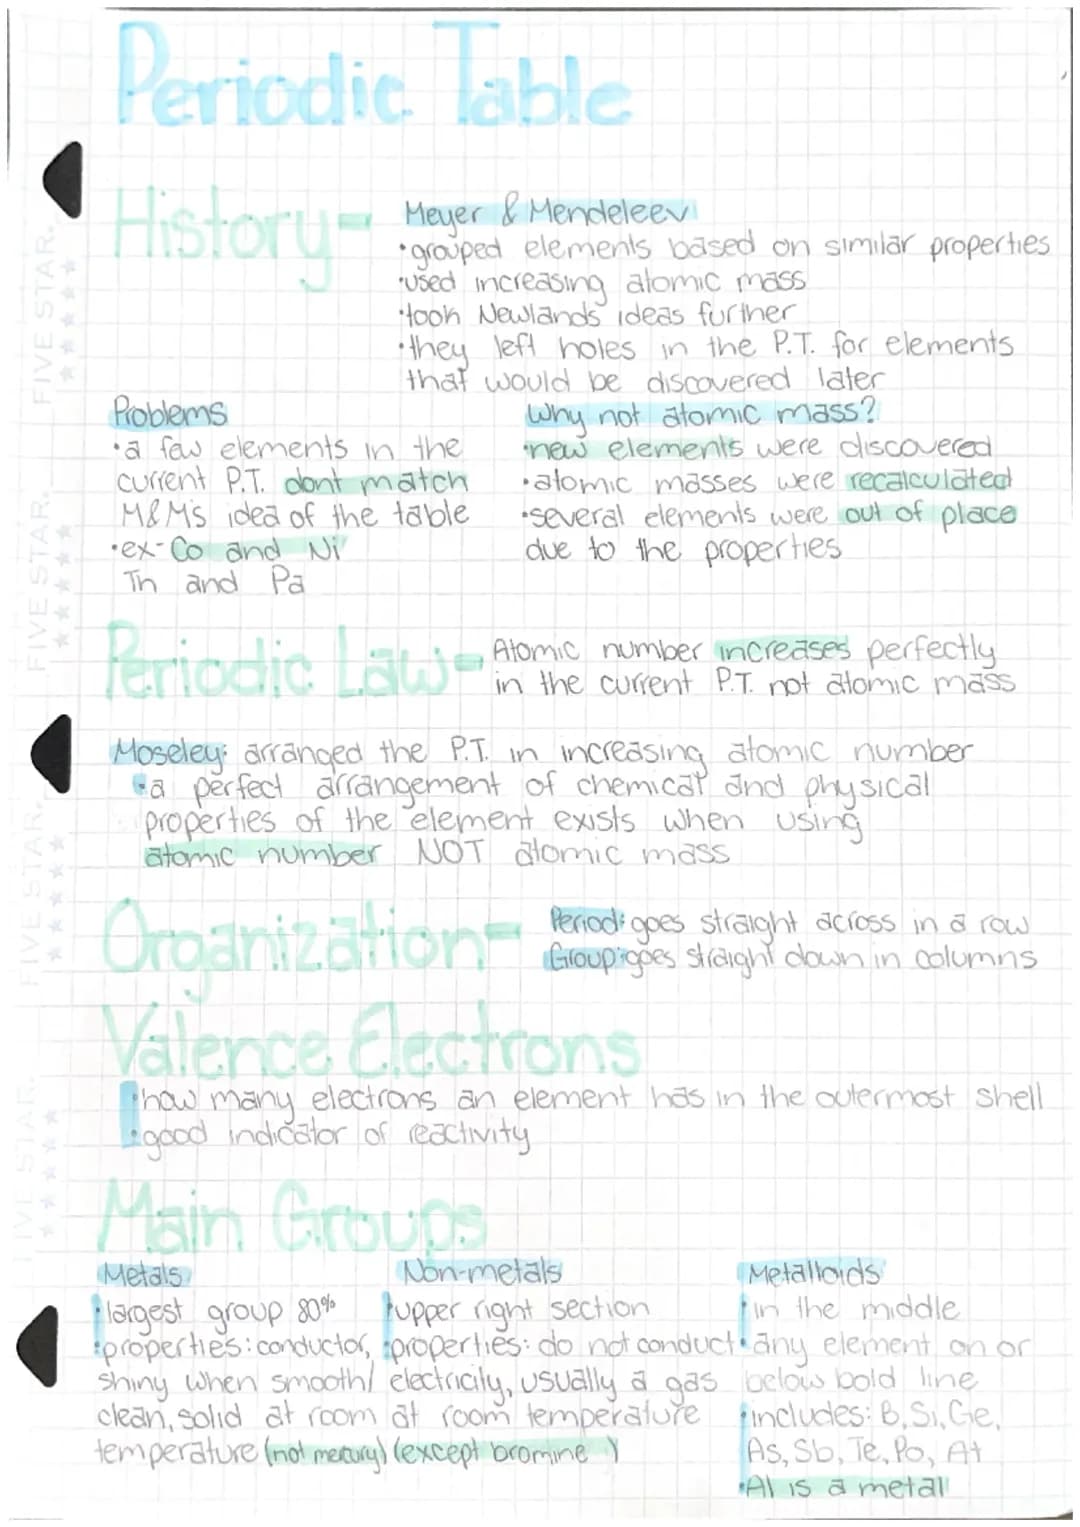 Periodic Table
History-
Meyer & Mendeleev
•grouped elements based on similar properties
•used increasing atomic mass
•took Newlands' ideas further
•they left holes in the P.T. for elements
that would be discovered later
Problems
•a few elements in the
current P.T. dont match
M&M's idea of the table
•ex- Co and Ni
Th and Pa
Why not atomic mass?
•new elements were discovered
•atomic masses were recalculated
•several elements were out of place
due to the properties
Periodic Law-
Atomic number increases perfectly
in the current P.T. not atomic mass
Moseley: arranged the P.T. in increasing atomic number
•a perfect arrangement of chemical and physical
properties of the element exists when using
atomic number NOT atomic mass
Organization-
Period: goes straight across in a row
Group: goes straight down in columns
Valence Electrons
•how many electrons an element has in the outermost shell
•good indicator of reactivity
Main Groups
Metals
•largest group 80%
•properties: conductor,
shiny when smooth/
clean, solid at room
temperature (not mercury)
Non-metals
•upper right section
•properties: do not conduct
electricity, usually a gas
at room temperature
(except bromine )
Metalloids
•in the middle
•any element on or
below bold line
•includes: B, Si, Ge,
As, Sb, Te, Po, At
•Al is a metal
FIVE STAR.
FIVE STAR.
FIVE STAR.
FIVE STAR.